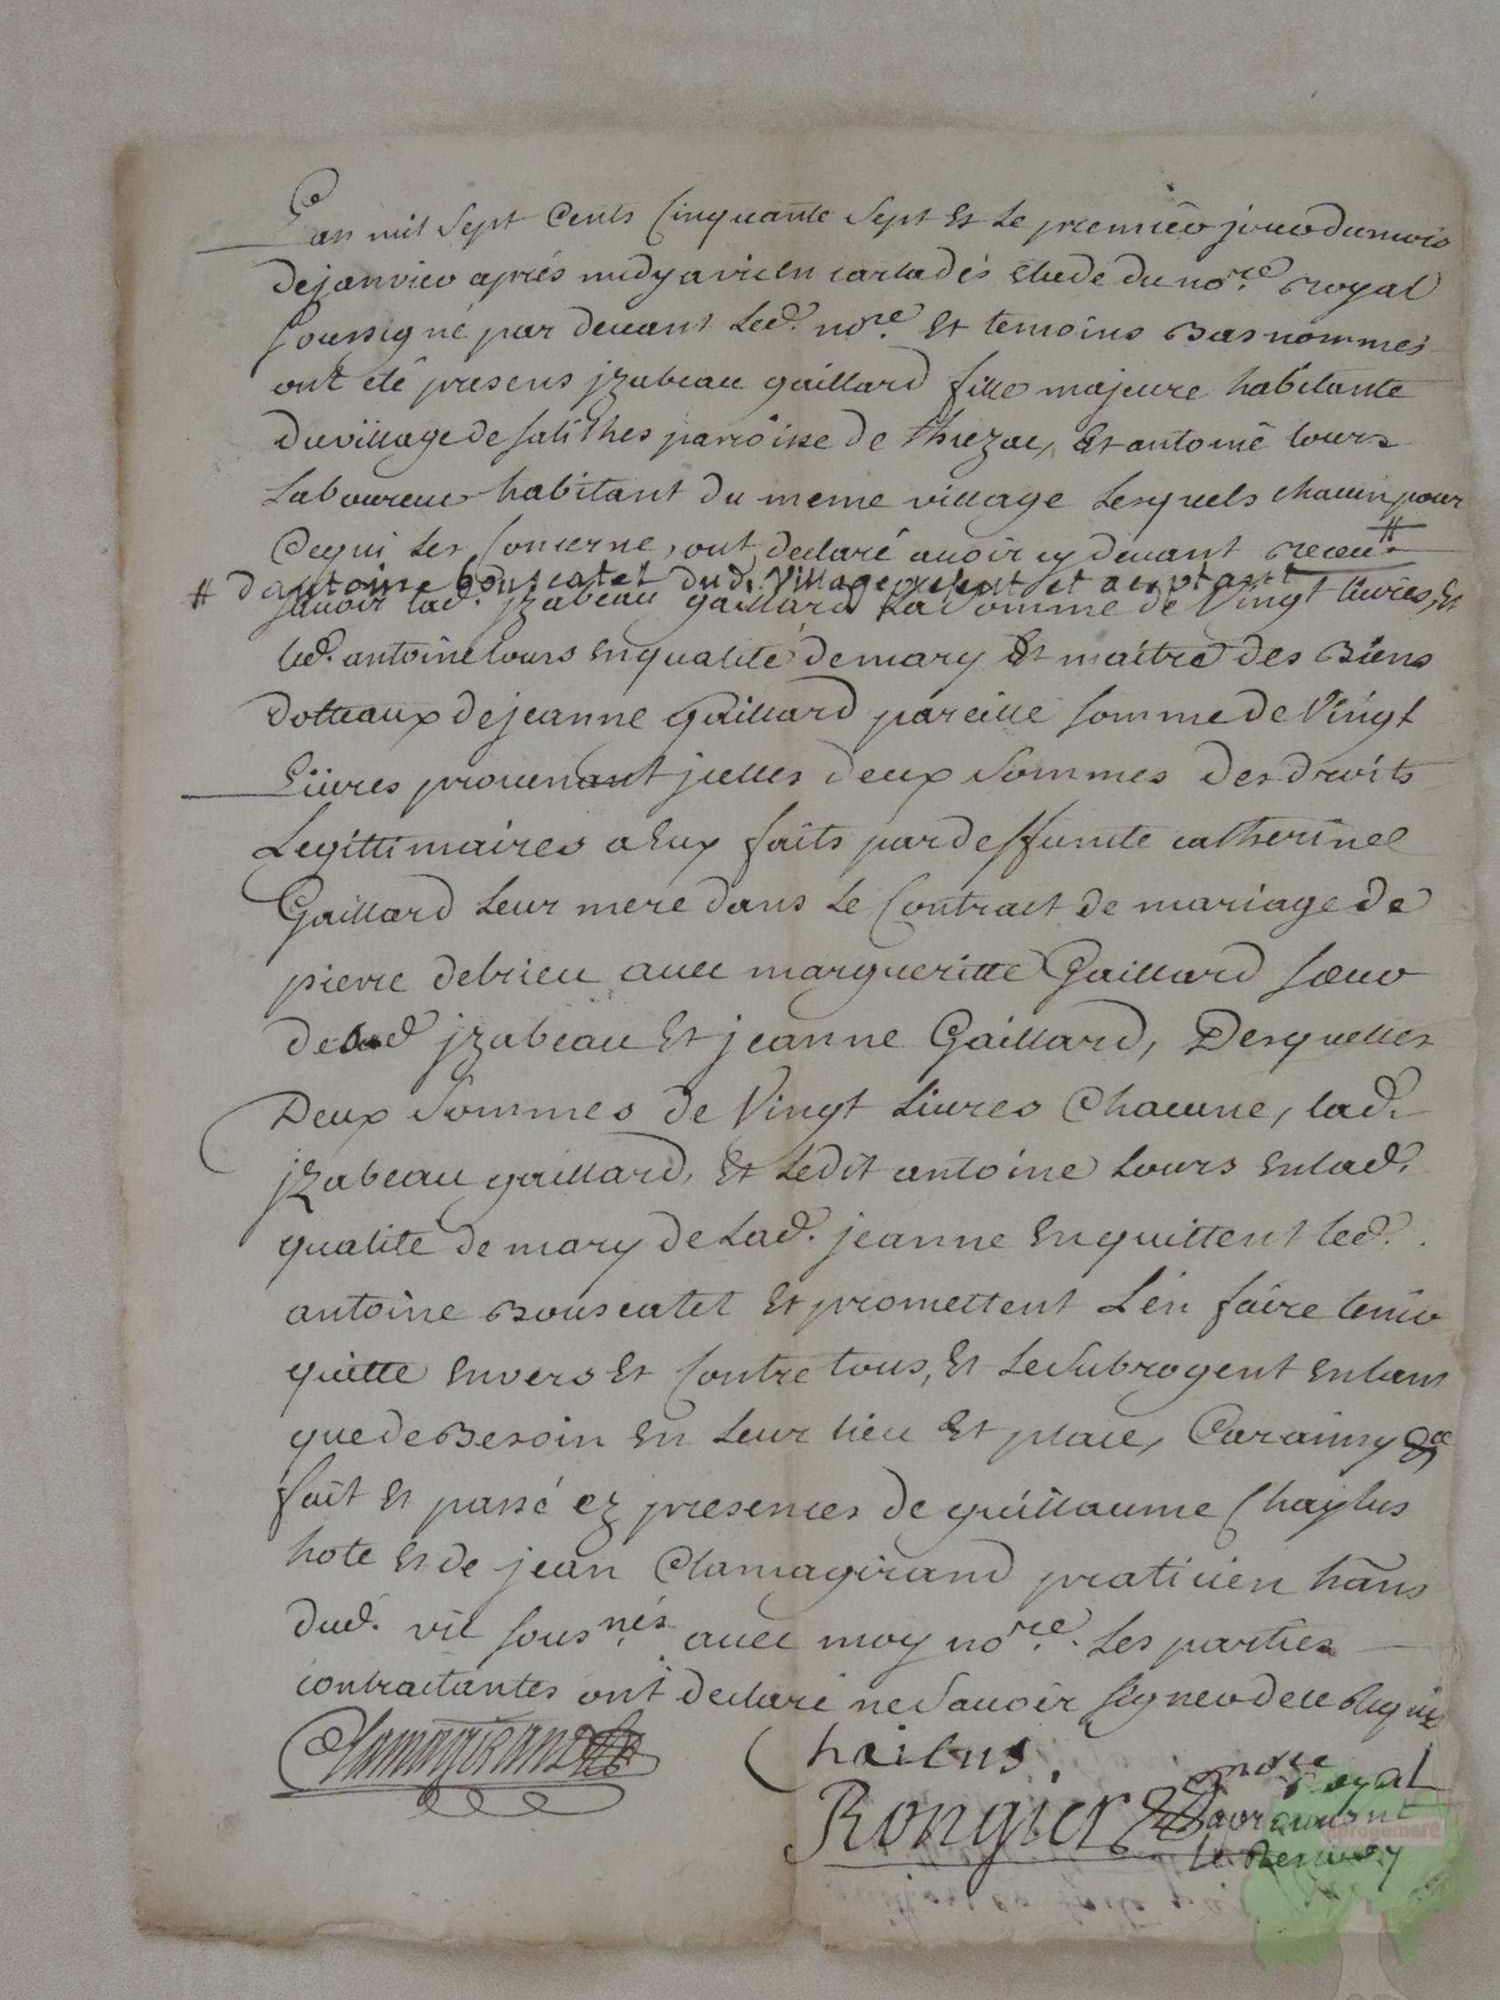 L'an mil sept cents cinquante sept et le premier jour du mois
de janvier aprés midy a vic en carladés etude du no.re royal
soussigné par devant led. no.re et temoins bas nommes
ont eté presens jzabeau gaillard fille majeure habitante
du village de salilhes parroisse de thiezac, et antoine lours
laboureur habitant du meme village lesquels chacun pour
ce qui les concerne, ont declaré avoir cy devant receu #
# d'antoine bouscatel dud. village present et acceptant
savoir lad. jzabeau gaillard la somme de vingt livres, et
led. antoine lours en qualité de mary et maitre des biens
dotteaux de jeanne gaillard pareille somme de vingt
livres provenant jcelles deux sommes des droits
legittimaires a eux faits par deffunte catherine
Gaillard leur mere dans le contract de mariage de
pierre debrieu avec margueritte Gaillard soeur
de lad jzabeau et jeanne Gaillard, Desquelles
Deux sommes de vingt livres chacune, lad.
jzabeau gaillard, et ledit antoine lours en lad.
qualité de mary de lad. jeanne en quittent led.
antoine Bouscatel et promettent l'en faire tenir
quitte envers et contre tous, et le subrogent en tant
que de besoin en leur lieu et place, Car ainsy &a
fait et passé ez presences de guillaume Chaylus
hote et de jean Clamagirand praticien hans
dud. vic sous.nés avec moy no.re. les parties
contractantes ont declaré ne savoir signer de ce requis
Clamagirand
Chailus.
Rongier no.re royal
aprouvant
le Renvoy